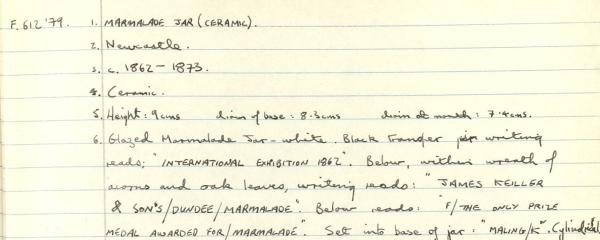 F.612 '79. 1. MARMALADE JAR (CERAMIC).
2. Newcastle.
3. c. 1862 - 1873.
4. Ceramic.
5. Height: 9cms diam of base: 8.3cms diam at mouth: 7.4cms.
6. Glazed Marmalade Jar - white. Black transfer writing
reads; "INTERNATIONAL EXHIBITION 1862". Below, within wreath of
acorns and oak leaves, writing reads: "JAMES KEILLER
& SON'S/DUNDEE/MARMALADE". Below reads: "F/THE ONLY PRIZE
MEDAL AWARDED FOR/MARMALADE". Set into base of jar: "MALING/K". Cylindrical